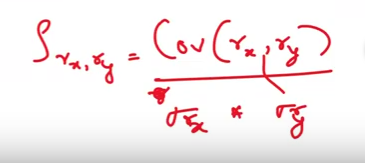 ρ_{r_x, r_y} = Cov(r_x, r_y) / σ_{r_x} * σ_{r_y}